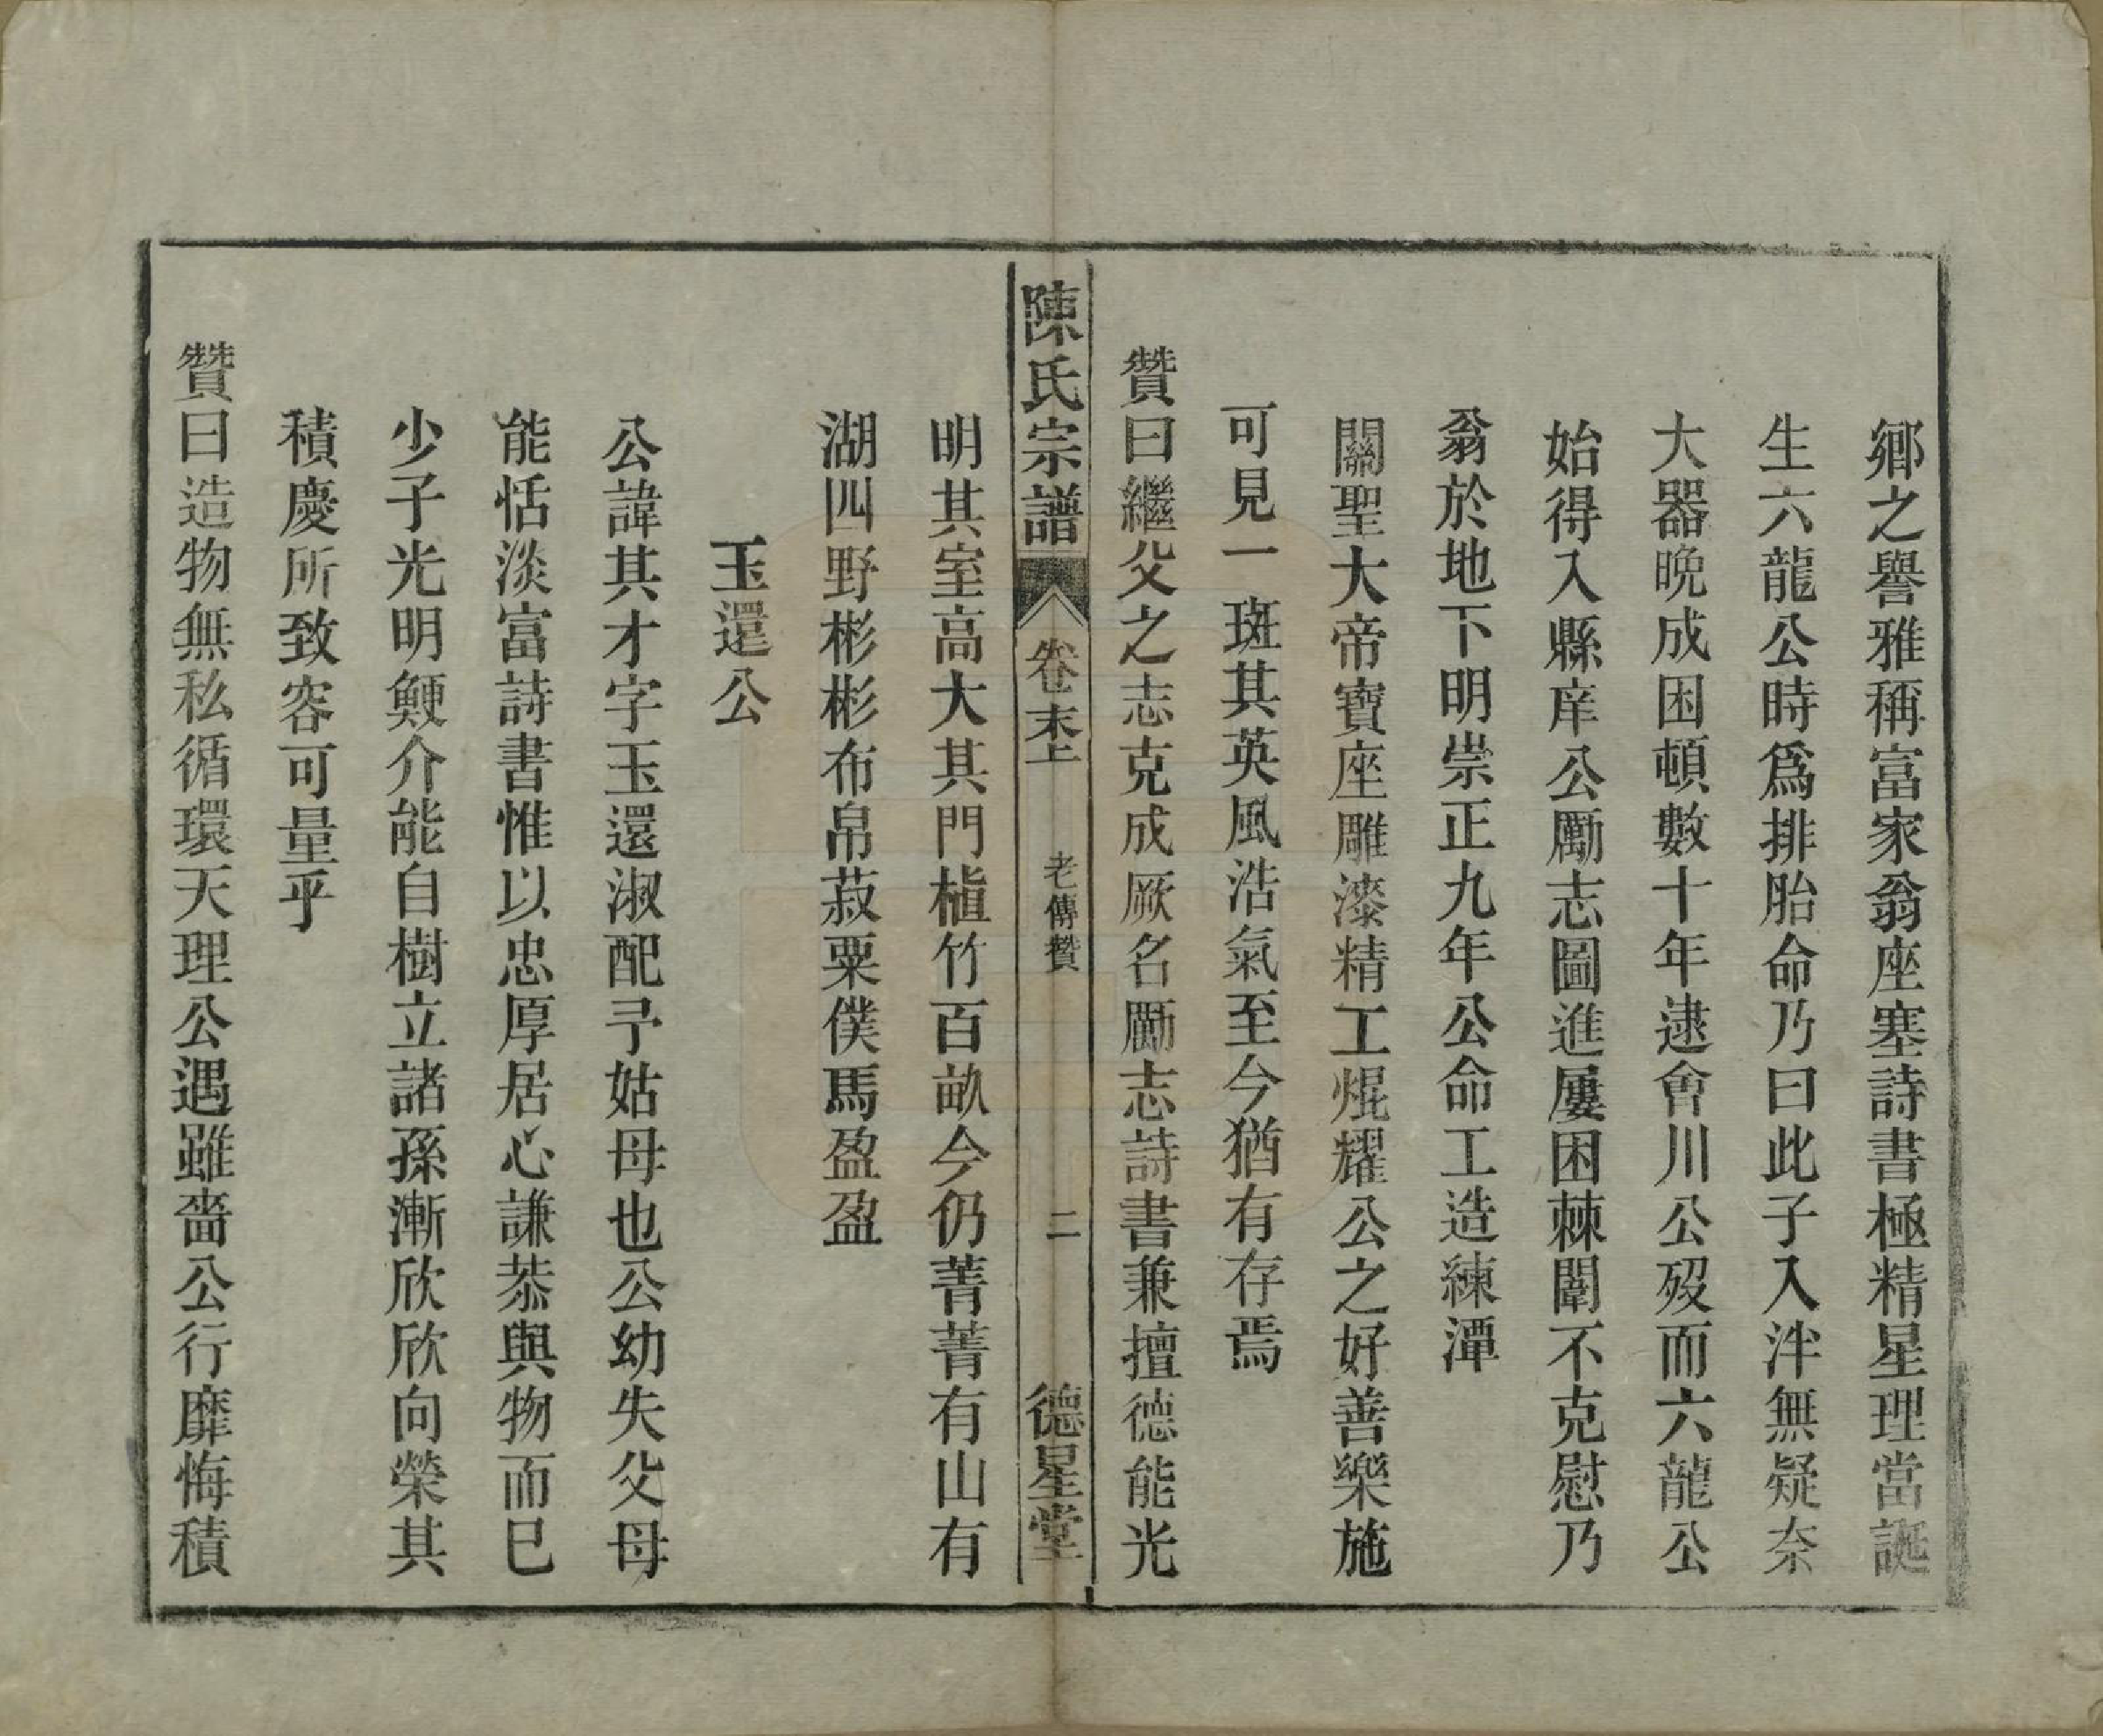 鄉之譽雅稱富家翁座塞詩書極精星理當誕
生六龍公時爲排胎命乃曰此子入泮無疑奈
大器晚成困頓數十年逮會川公歿而六龍公
始得入縣庠公勵志圖進屢困棘闈不克慰乃
翁於地下明崇正九年公命工造練潭
關聖大帝寶座雕漆精工焜耀公之好善樂施
可見一斑其英風浩氣至今猶有存焉
贊曰繼父之志克成厥名勵志詩書兼擅德能光
陳氏宗譜 卷末上 老傳贊 二 德星堂
明其室高大其門植竹百畝今仍菁菁有山有
湖四野彬彬布帛菽粟僕馬盈盈
玉還公
公諱其才字玉還淑配予姑母也公幼失父母
能恬淡富詩書惟以忠厚居心謙恭與物而已
少子光明鯁介能自樹立諸孫漸欣欣向榮其
積慶所致容可量乎
贊曰造物無私循環天理公遇雖嗇公行靡悔積